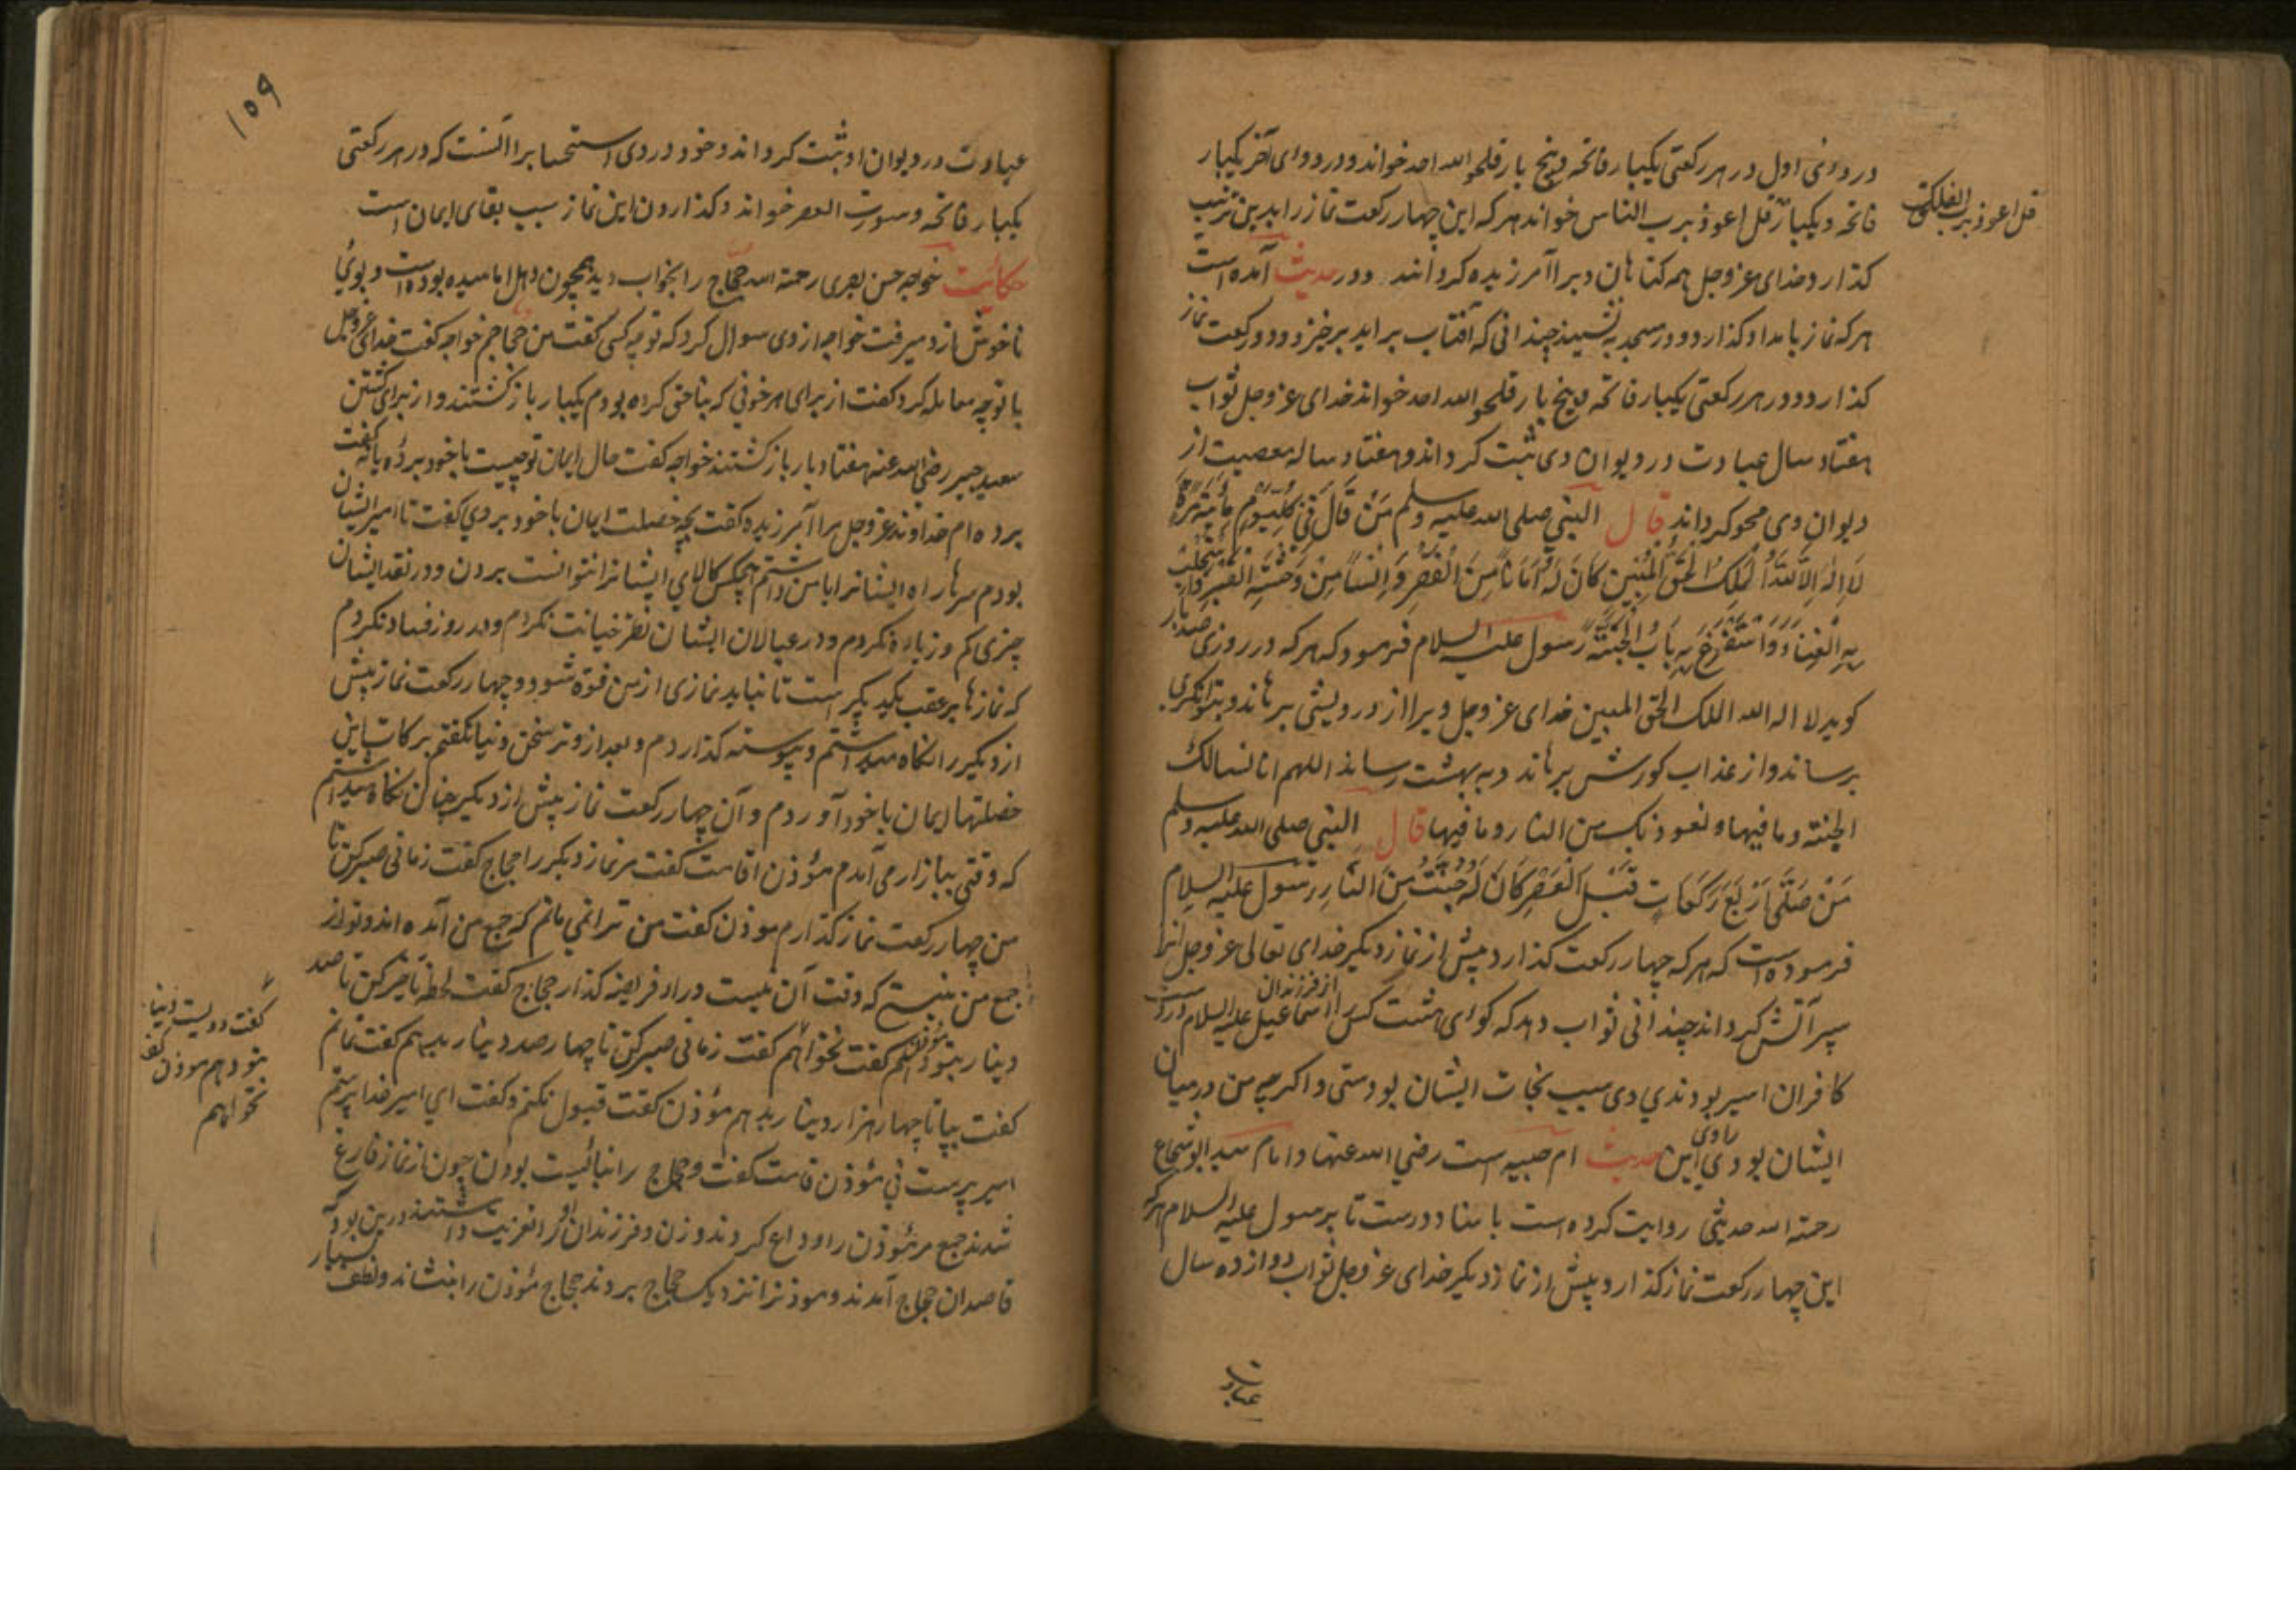 در دوئی اول در هر رکعتی یکبار فاتحه و پنج بار قل هو الله احد خواند و در دوای آخر یکبار
فاتحه و یکبار قل اعوذ برب الناس خواند هرکه این چهار رکعت نماز را بدین ترتیب
قل اعوذ برب الفلق
کذارد خدای عز و جل همه کناهان ویرا آمرزیده کرداند و در حدیث آمده است
هرکه نماز بامداد کذارد و در مسجد بنشیند چندانی که آفتاب براید برخیزد و دو رکعت نماز
کذارد و در هر رکعتی یکبار فاتحه و پنج بار قل هو الله احد خواند خدای عز و جل ثواب
هفتاد سال عبادت در دیوان وی ثبت کرداند و هفتاد ساله معصیت از
دیوان وی محو کرداند قال النبی صلی الله علیه وسلم مَن قَالَ فِی کُلِّ یَومٍ مِائَةَ مَرَّةٍ
لَا اِلٰهَ اِلَّا اللّٰهُ المَلِکُ الحَقُّ المُبِین کَانَ لَهُ اَمَانًا مِنَ الفَقرِ وَ اِنسًا مِن وَحشَةِ القَبرِ وَاستَجلَبَ
بِهِ الغِنَاءَ وَاستَقرَعَ بِهِ بَابُ الجَنَّةِ رسول علیه السلام فرمود که هرکه در روزی صد بار
کوید لا اله الا الله الملک الحق المبین خدای عز و جل ویرا از درویشی برهاند و بتوانکری
برساند و از عذاب کورش برهاند و به بهشت رساند اللهم انا نسالک
الجنة و ما فیها و نعوذ بک من النار و ما فیها قال النبی صلی الله علیه وسلم
مَن صَلَّی اَربَعَ رَکَعَاتٍ قَبلَ العَصرِ کَانَ لَهُ جُنَّةٌ مِنَ النَّارِ رسول علیه السلام
فرموده است که هرکه چهار رکعت کذارد پیش از نماز دیکر خدای تعالی عز و جل انرا
سپر آتش کرداند چندانی ثواب دهد که کوای هشت کس را از فرزندان اسماعیل علیه السلام در دست
کافران اسیر بودندی وی سبب نجات ایشان بودستی و اکرچه من درمیان
ایشان بودی راوی این حدیث ام حبیبه است رضی الله عنها و امام سید ابو شجاع
رحمة الله حدیثی روایت کرده است باسناد درست تا برسول علیه السلام هرکه
این چهار رکعت نماز کذارد پیش از نماز دیکر خدای عز و جل ثواب دوازده سال
عبادت
۱۵۹
عبادت در دیوان او ثبت کرداند و خود در وی استحبابرا آنست که در هر رکعتی
یکبار فاتحه و سورت العصر خواند و کذاردن این نماز سبب بقای ایمان است
حکائیت خواجه حسن بصری رحمة الله حجاج را بخواب دید همچون دهل اماسیده بوده است و بوئی
ناخوش ازو میرفت خواجه ازوی سوال کرد که تو چه کسی کفت من حجاجم خواجه کفت خدای عز و جل
با تو چه معامله کرد کفت از برای هر خونی که بناحق کرده بودم یکبار باز کشتند و از برای کشتن
سعید جبیر رضی الله عنه هفتاد بار باز کشتند خواجه کفت حال ایمان تو چیست با خود بردۀ یا نه کفت
برده ام خداوند عز و جل مرا آمرزیده کفت بچه خصلت ایمان با خود بردی کفت تا امیر ایشان
بودم سرها راه ایشانرا با من داشتم هیچکس کالای ایشانرا نتوانست بردن و در نقد ایشان
چیزی کم و زیاده نکردم و در عیالان ایشان نظر خیانت نکردم و در روز فساد نکردم
که نازها بر عقب یکدیکر است تا نباید نمازی از من فوة شود و چهار رکعت نماز پیش
از دیکر را نکاه میداشتم و پیوسته کذاردم و بعد از وتر سخن دنیا نکفتم برکات این
خصلتها ایمان با خود آوردم و آن چهار رکعت نماز پیش از دیکر چنان نکاه میداشتم
که وقتی ببازار می آمدم مؤذن اقامت کفت مر نماز دیکر را حجاج کفت زمانی صبر کن تا
من چهار رکعت نماز کذارم موذن کفت من ترا نمی مانم که جمع من آمده اند و تو از
جمع من نیستی که وقت آن نیست درار فریضه کذار حجاج کفت لحظه تاخیر کن تا صد
دینار بتو دهم مؤذن کفت نخواهم کفت زمانی صبر کن تا چهار صد دینار بدهم کفت نمانم
کفت دویست دینار
بتو دهم موذن کفت
نخواهم
کفت بیا تا چهار هزار دینار بدهم مؤذن کفت قبول نکنم و کفت ای امیر خدا پرستم
امیر پرست نی مؤذن قامت کفت و حجاج را نبائیست بودن چون از نماز فارغ
شدند جمع مر مؤذن را وداع کردند و زن و فرزندان او را تعزیت داشتند درین بود که
قاصدان حجاج آمدند و موذنرا نزدیک حجاج بردند حجاج مؤذن را بنشاند و لطف بسیار